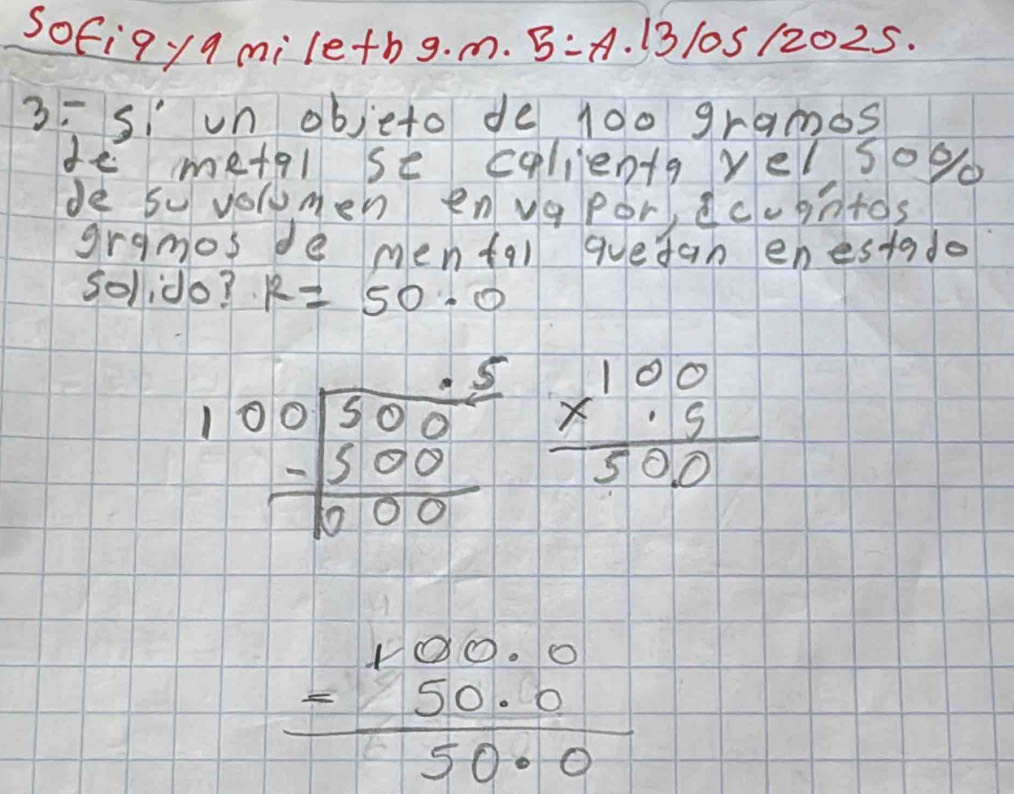 Sofia yamileth g.m. 5=A. 13/05/2025.
3=Si un objeto de 100 gramos
de metal se calienta y el 50%
de su volumen en va por, ¿cuántos
gramos de mental quedan en estado
solido? R= 50.0
.5
100 500
- 500
000
100
x .5
50.0
100.0
= 50.0
50.0